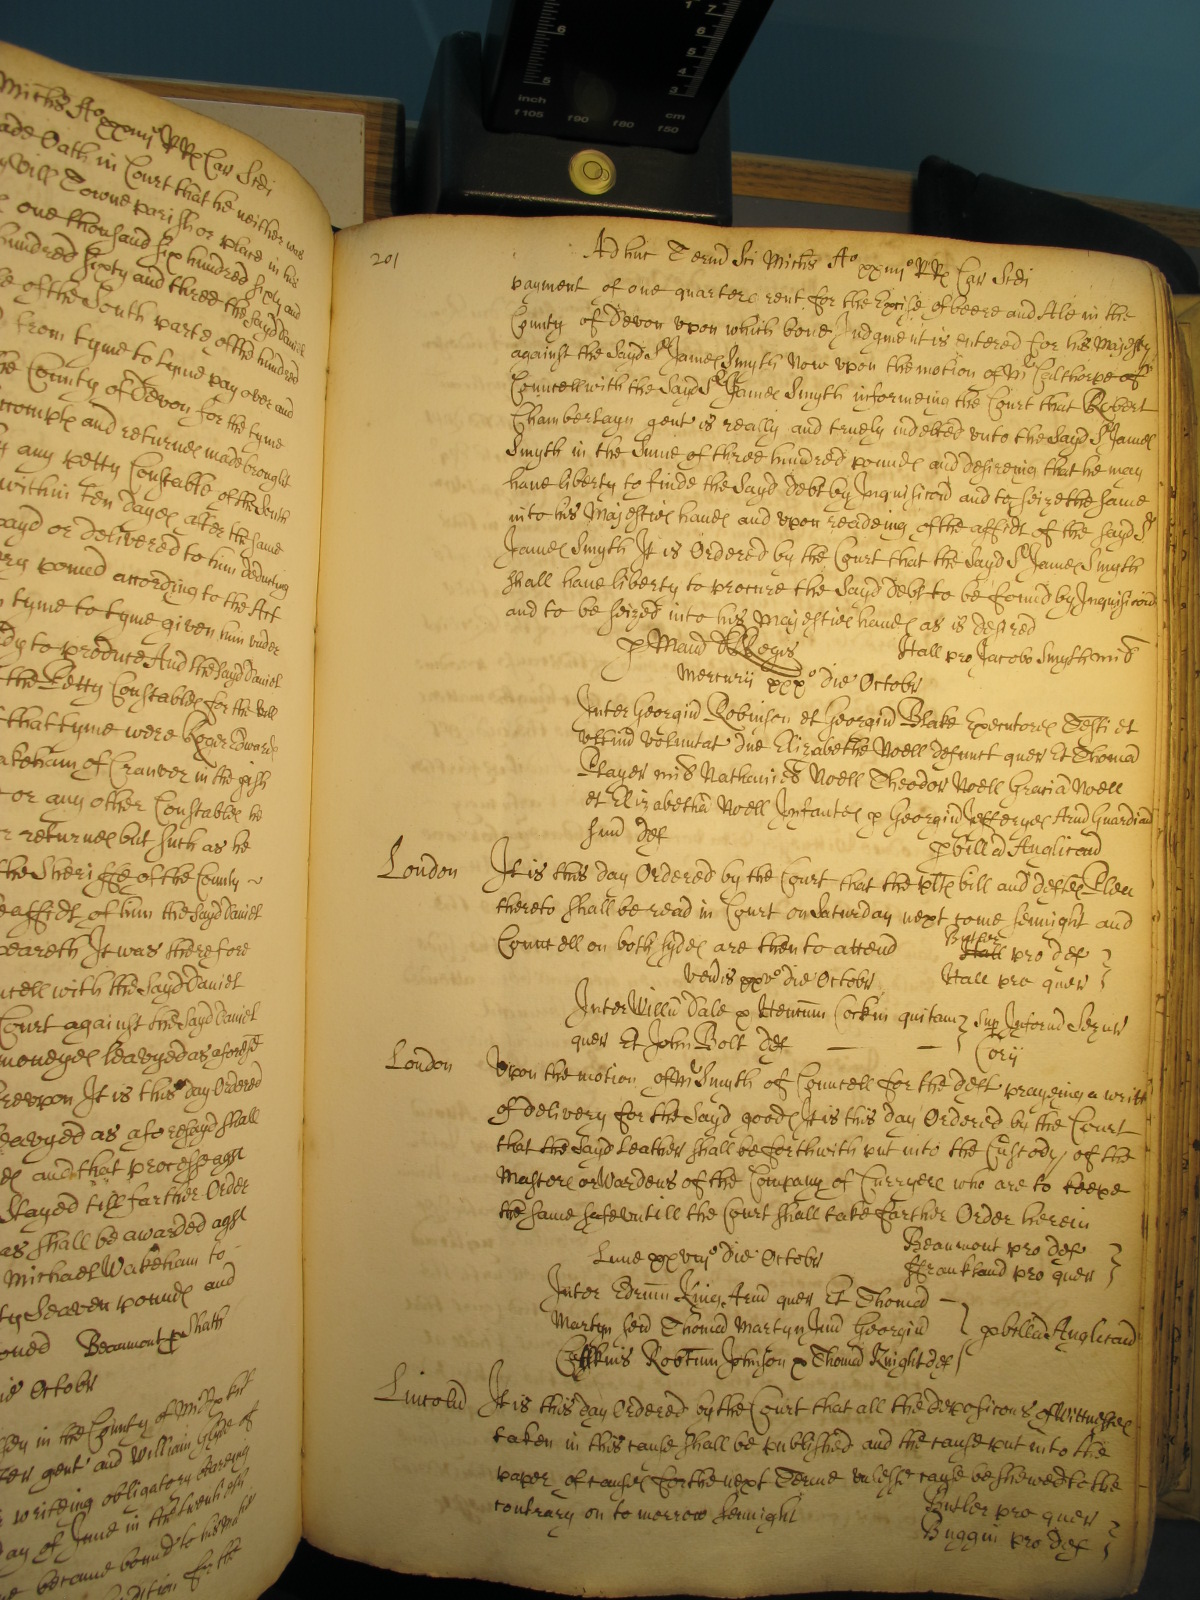 Michis Ao xxiiijo RRx Car Scdi
ade Oath in Court that he neither was
Vill Towne parish or place in his
one thousand six hundred sixty and
hundred sixty and three the sayd Daniel
of the South parte of the hundred
from tyme to tyme pay over and
he County of Devon for the tyme
accompts and returnes made brought
any petty Constable of the South
within Ten dayes after the same
payd or delivered to him deducting
pound according to the Act
tyme to tyme given him under
to produce And the sayd Daniel
the Petty Constables for the Vill
that tyme were Roger Edwards
akeham of Cranver in the
or any other Constables he
returnes but such as he
the Sheriffe of the County
affidt of him the sayd Daniel
peareth It was therefore
ncell with the sayd Daniel
Court against the sayd Daniel
moneyes leavyed as aforesd
ereupon It is this day Ordered
leavyed as aforesayd shall
and that processe agt
stayed till farther Order
as shall be awarded agt
Michael Wakeham to
ty Seaven pounds and
oned Beaumont p
die Octobr
in the County of Middx
gent and William Glyde of
writeing obligatory bearing
ay of June in the twentieth
became bound to his
condition for the
inch
cm
f105 f90 f80 f50
6
5
1
7
6
5
4
3
201
Adhuc Termo Sci Michis Ao xxiiijo RRx Car Scdi
payment of one quarters rent for the Excise of beere and Ale in the
County of Devon upon which bond Judgment is entered for his Majesty
against the sayd Sr James Smyth Now upon the motion of Mr Calthorpe of
Councell with the sayd Sr James Smyth informeing the Court that Robert
Chamberlayn gent is really and truely indebted unto the sayd Sr James
Smyth in the Sume of three hundred pounds and desireing that he may
have liberty to finde the sayd debt by Inquisicon and to seize the same
into his Majesties hands and upon readeing of the affidt of the sayd Sr
James Smyth It is Ordered by the Court that the sayd Sr James Smyth
shall have liberty to procure the sayd debt to be found by Inquisicon
and to be seized into his Majesties hands as is desired
p Maund Regis Hall pro Jacobo Smyth mil
Mercurij xxxo die Octobr
Inter Georgiu Robinson et Georgiu Blake Executores Testi et
ultim voluntat dne Elizabethe Noell defunct quer Et Thomā
Player mil Nathaniel Noell Theodor Noell Graciā Noell
et Elizabethā Noell Infantes p Georgiu Jefferyes Arm Guardian
suu def p billā Anglicanā
London It is this day Ordered by the Court that the plts bill and defts Plea
thereto shall be read in Court on Saturday next come sennight and
Councell on both sydes are then to attend Butler pro def
Hall pro quer
Veneris xxvo die Octobr
Inter Willm Dale p Henricum Cockin quitam Sup Informd Seizur
quer Et John Bolt def Corij
London Upon the motion of Mr Smyth of Councell for the deft prayeing a writt
of delivery for the sayd goods It is this day Ordered by the Court
that the sayd Leather shall be forthwith put into the Custody of the
Masters or Wardens of the Company of Curryers who are to keepe
the same safe untill the Court shall take farther Order herein
Beaumont pro def
Lune xxviijo die Octobr ffrankland pro quer
Inter Edrum King Arm quer Et Thomā
Martyn sen Thomā Martyn Jun Georgiu
Robtum Johnson p Thomā Knight def p billā Anglicanā
Lincoln It is this day Ordered by the Court that all the deposicons of Wittnesses
taken in this cause shall be published and the cause put into the
paper of causes for the next Terme unlesse cause be shewed to the
contrary on to morrow sennight Butler pro quer
Buggin pro def